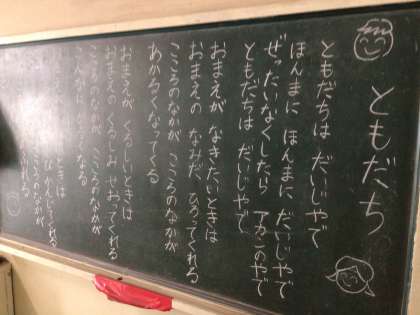 ともだち
ともだちは だいじやで
ほんまに ほんまに だいじやで
ぜったいなくしたら アカンのやで
ともだちは だいじやで
おまえが なきたいときは
おまえの なみだ ひろてくれる
こころのなかが こころのなかが
あかるくなってくる
おまえが くるしいときは
おまえの くるしみ せおってくれる
こころのなかが こころのなかが
ときは
こころのなかが